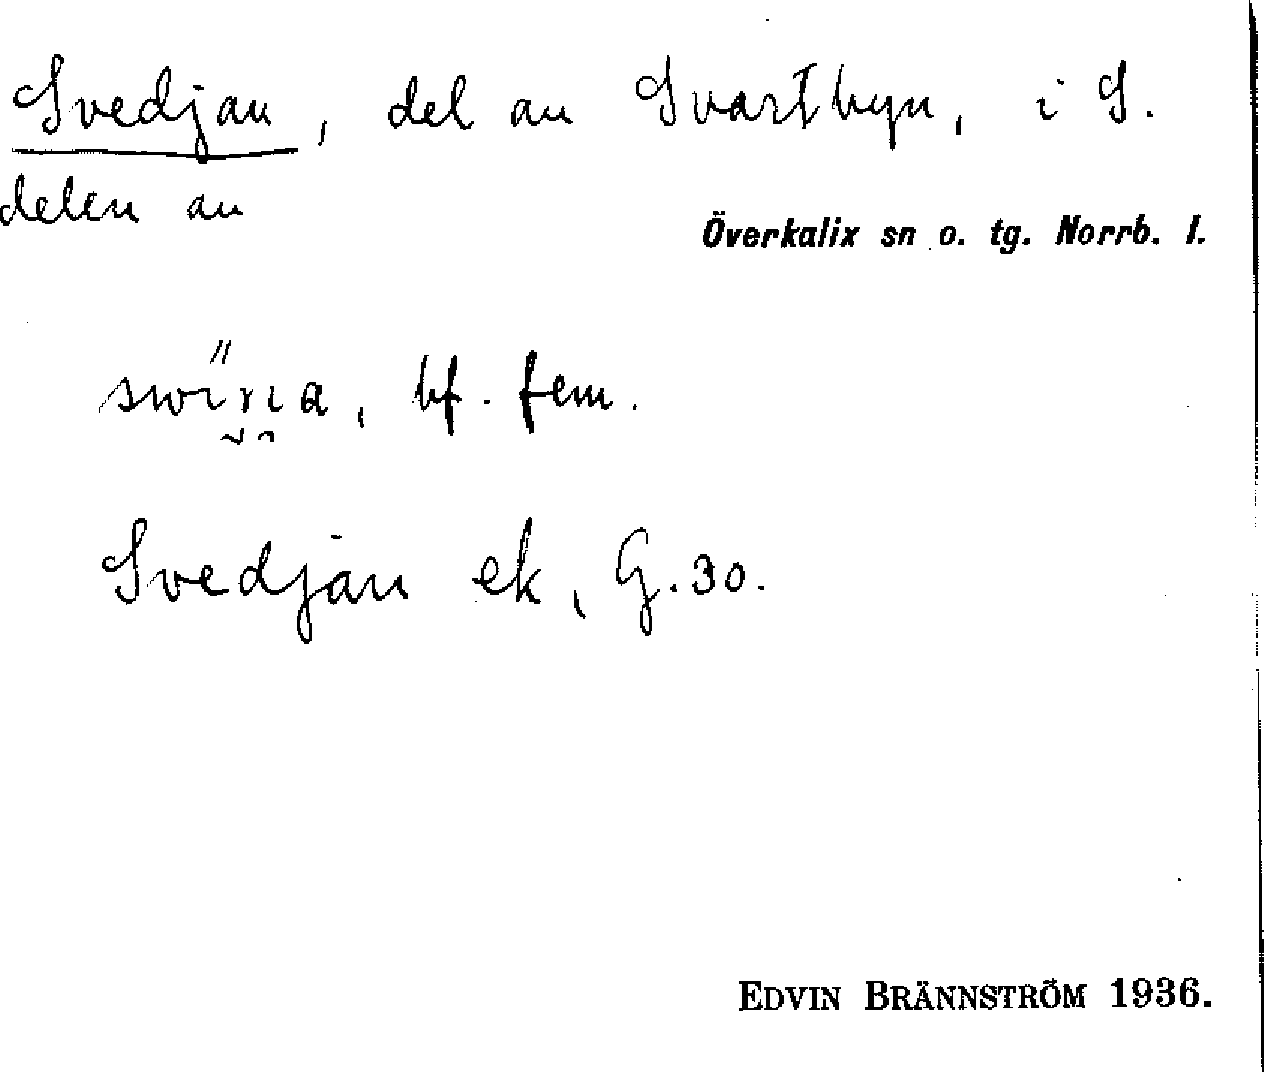 Svedjan, del av Svartbyn, i S.
delen av
Överkalix sn o. tg. Norrb. l.
bf. fem.
Svedjan ek, G. 30.
EDVIN BRÄNNSTRÖM 1936.